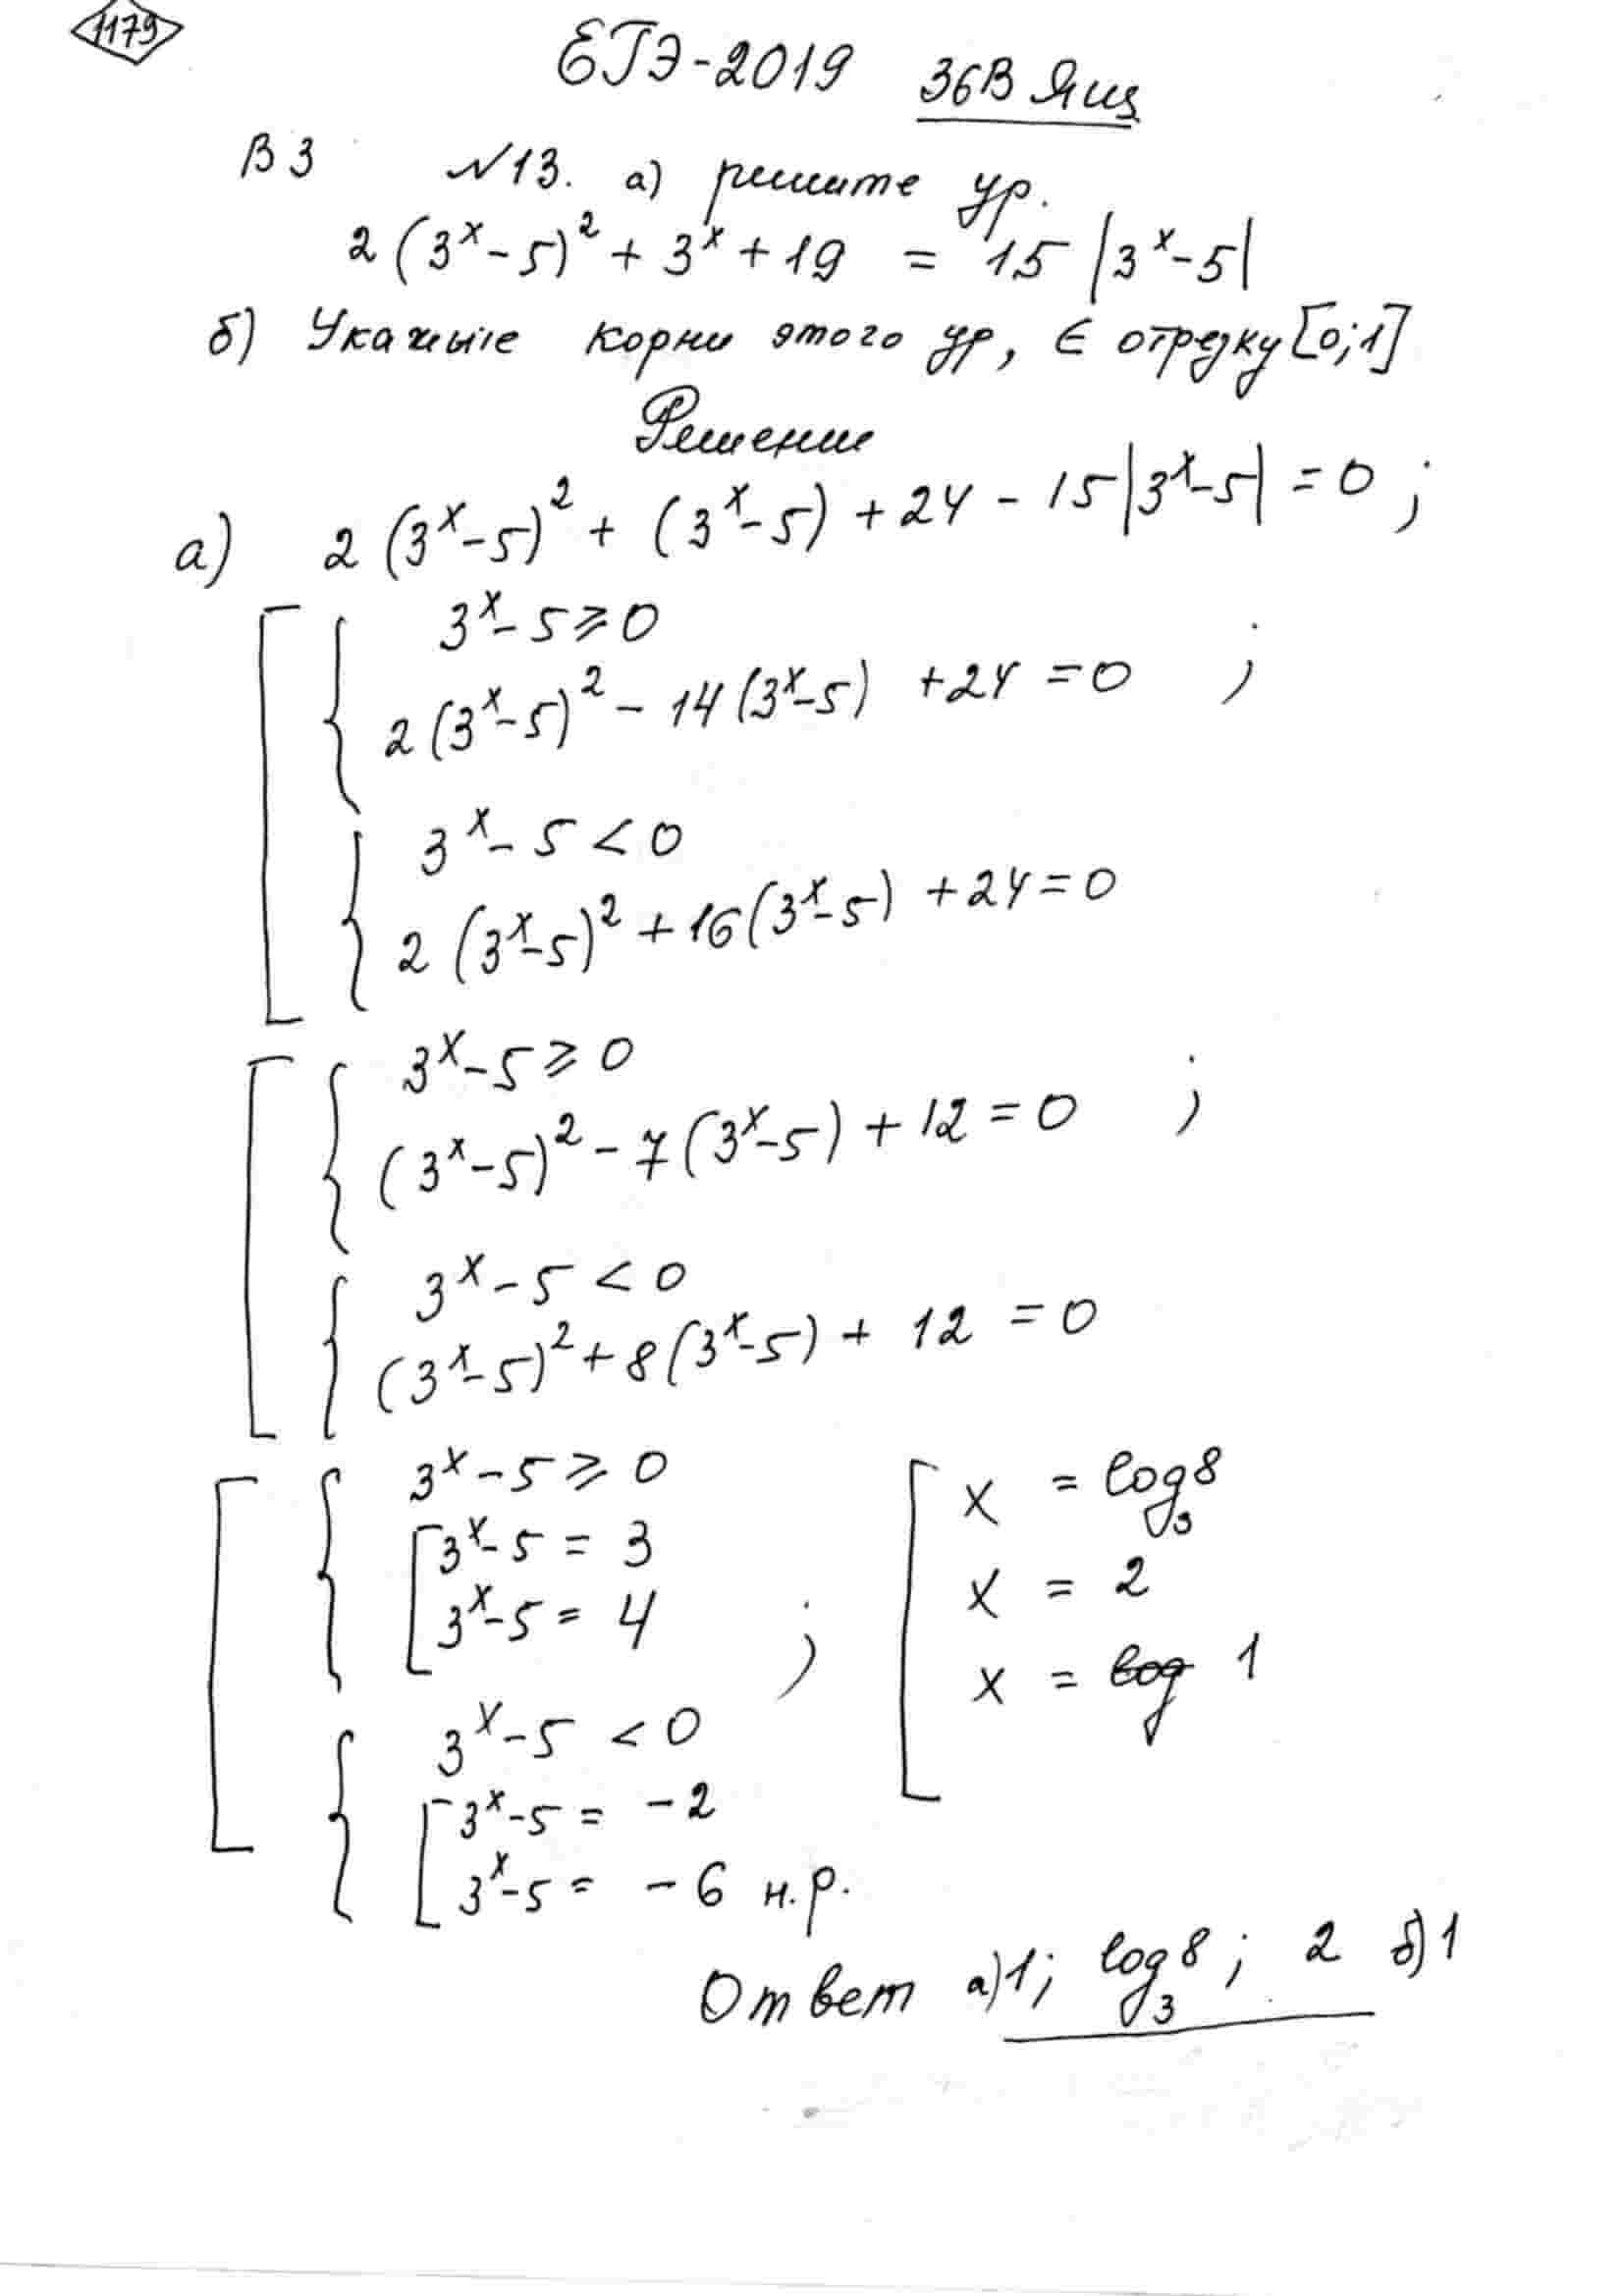 1179
ЕГЭ-2019 36В Ящ
В3 №13. а) решите ур.
2(3^x-5)^2+3^x+19 = 15|3^x-5|
б) Укажите корни этого ур, ∈ отрезку [0;1]
Решение
а) 2(3^x-5)^2+(3^x-5)+24-15|3^x-5|=0;
3^x-5⩾0
2(3^x-5)^2-14(3^x-5)+24=0;
3^x-5<0
2(3^x-5)^2+16(3^x-5)+24=0
3^x-5⩾0
(3^x-5)^2-7(3^x-5)+12=0;
3^x-5<0
(3^x-5)^2+8(3^x-5)+12=0
3^x-5⩾0
3^x-5=3
3^x-5=4;
3^x-5<0
3^x-5=-2
3^x-5=-6 н.р.
x = log_3 8
x = 2
x = log 1
Ответ а)1; log_3 8; 2 б)1